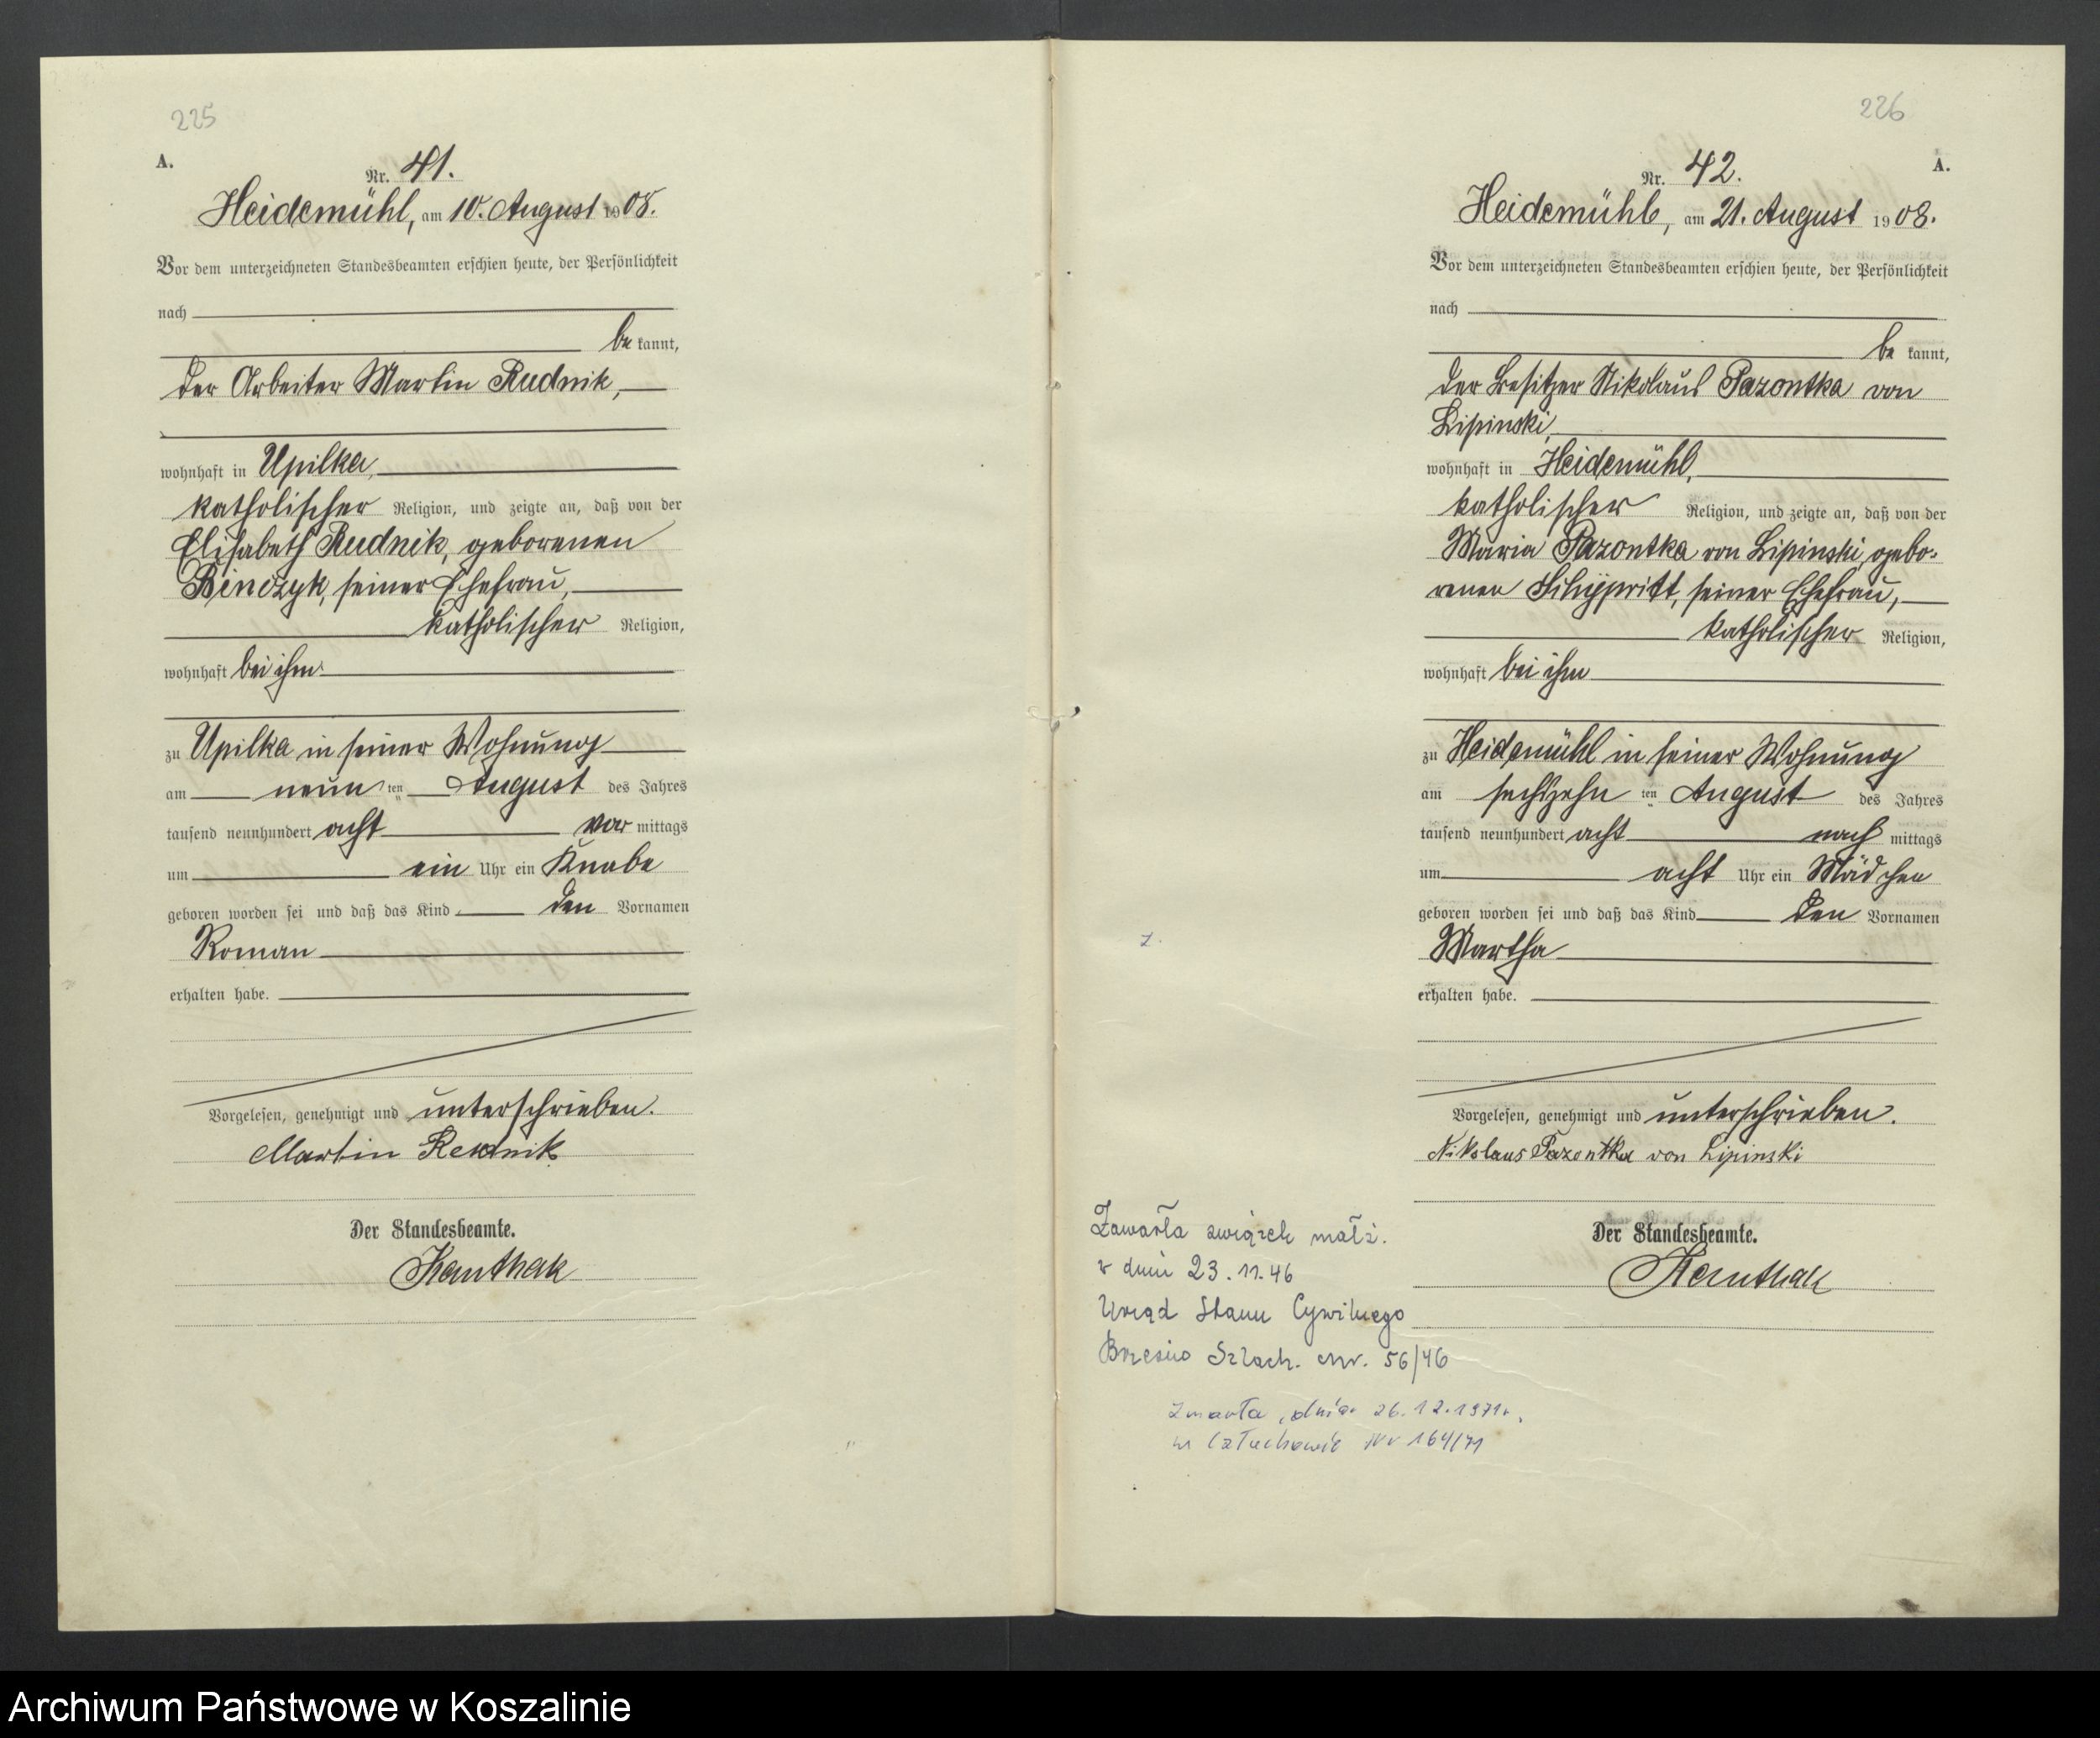 225
A.
Nr. 41.
Heidemühl, am 10. August 1908.
Vor dem unterzeichneten Standesbeamten erschien heute, der Persönlichkeit
nach
be kannt,
der Arbeiter Martin Rudnik,
wohnhaft in Upilka,
katholischer Religion, und zeigte an, daß von der
Elisabeth Rudnik, geborenen
Binczyk, seiner Ehefrau,
katholischer Religion,
wohnhaft bei ihm
zu Upilka in seiner Wohnung
am neun ten August des Jahres
tausend neunhundert acht vor mittags
um ein Uhr ein Knabe
geboren worden sei und daß das Kind den Vornamen
Roman
erhalten habe.
Vorgelesen, genehmigt und unterschrieben.
Martin Rudnik
Der Standesbeamte.
Kauthak
226
A.
Nr. 42.
Heidemühl, am 21. August 1908.
Vor dem unterzeichneten Standesbeamten erschien heute, der Persönlichkeit
nach
be kannt,
der Besitzer Nikolaus Pazontka von
Lipinski,
wohnhaft in Heidemühl,
katholischer Religion, und zeigte an, daß von der
Maria Pazontka von Lipinski, gebo-
renen seiner Ehefrau,
katholischer Religion,
wohnhaft bei ihm
zu Heidemühl in seiner Wohnung
am sechszehn ten August des Jahres
tausend neunhundert acht nach mittags
um acht Uhr ein Mädchen
geboren worden sei und daß das Kind den Vornamen
Martha
erhalten habe.
Vorgelesen, genehmigt und unterschrieben.
Nikolaus Pazontka von Lipinski
Der Standesbeamte.
Kauthak
Zawarła związek małż.
w dniu 23.11.46
Urząd Stanu Cywilnego
Brzeźno Szlach. Nr. 56/46
Zmarła dnia 26.12.1971r.
w Człuchowie Nr 164/71
Archiwum Państwowe w Koszalinie